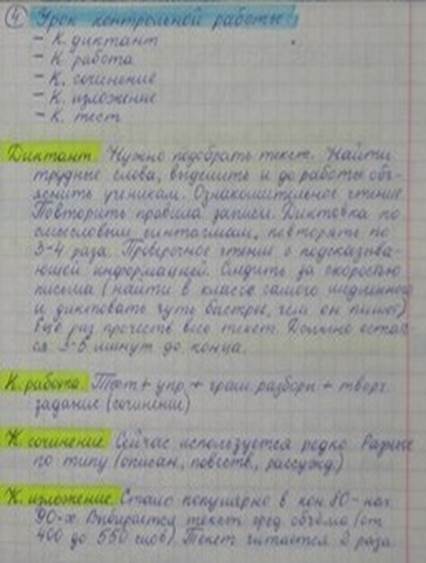 ④ Урок контрольной работы
- К. диктант
- К. работа
- К. сочинение
- К. изложение
- К. тест
Диктант. Нужно подобрать текст. Найти
трудные слова, выделить и до работы объ-
яснить ученикам. Ознакомительное чтение.
Повторить правила записи. Диктовка по
смысловым синтагмам, повторять по
3-4 раза. Проверочное чтение с подсказыва-
ющей информацией. Следить за скоростью
письма (найти в классе самого медленного
и диктовать чуть быстрее, чем он пишет).
Ещё раз прочесть весь текст. Должно остат
ся 3-5 минут до конца.
К. работа. Тест + упр. + грам. разборы + творч.
задание (сочинение)
К. сочинение. Сейчас используется редко. Разные
по типу (описан., повеств., рассужд.)
К. изложение. Стало популярно в кон. 80-нач.
90-х. Выбирается текст сред. объёма (от
400 до 550 слов). Текст читается 2 раза.